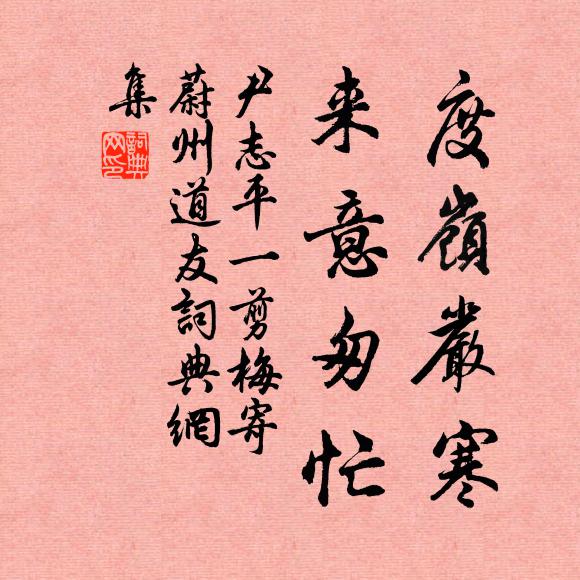 度嶺嚴寒
来意匆忙
尹志平一剪梅寄
蔚州道友詞典網
集
詞典网印